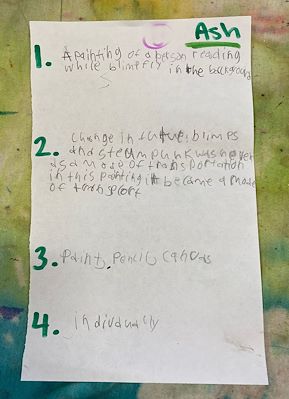 Ash
1. A painting of a person reading
while blimefly in the background
2. change in future, blimes
and steampunk was never
as a mode of transportation
in this painting it became a mode
of transport
3. Paint, Pencil, Canvas
4. individually